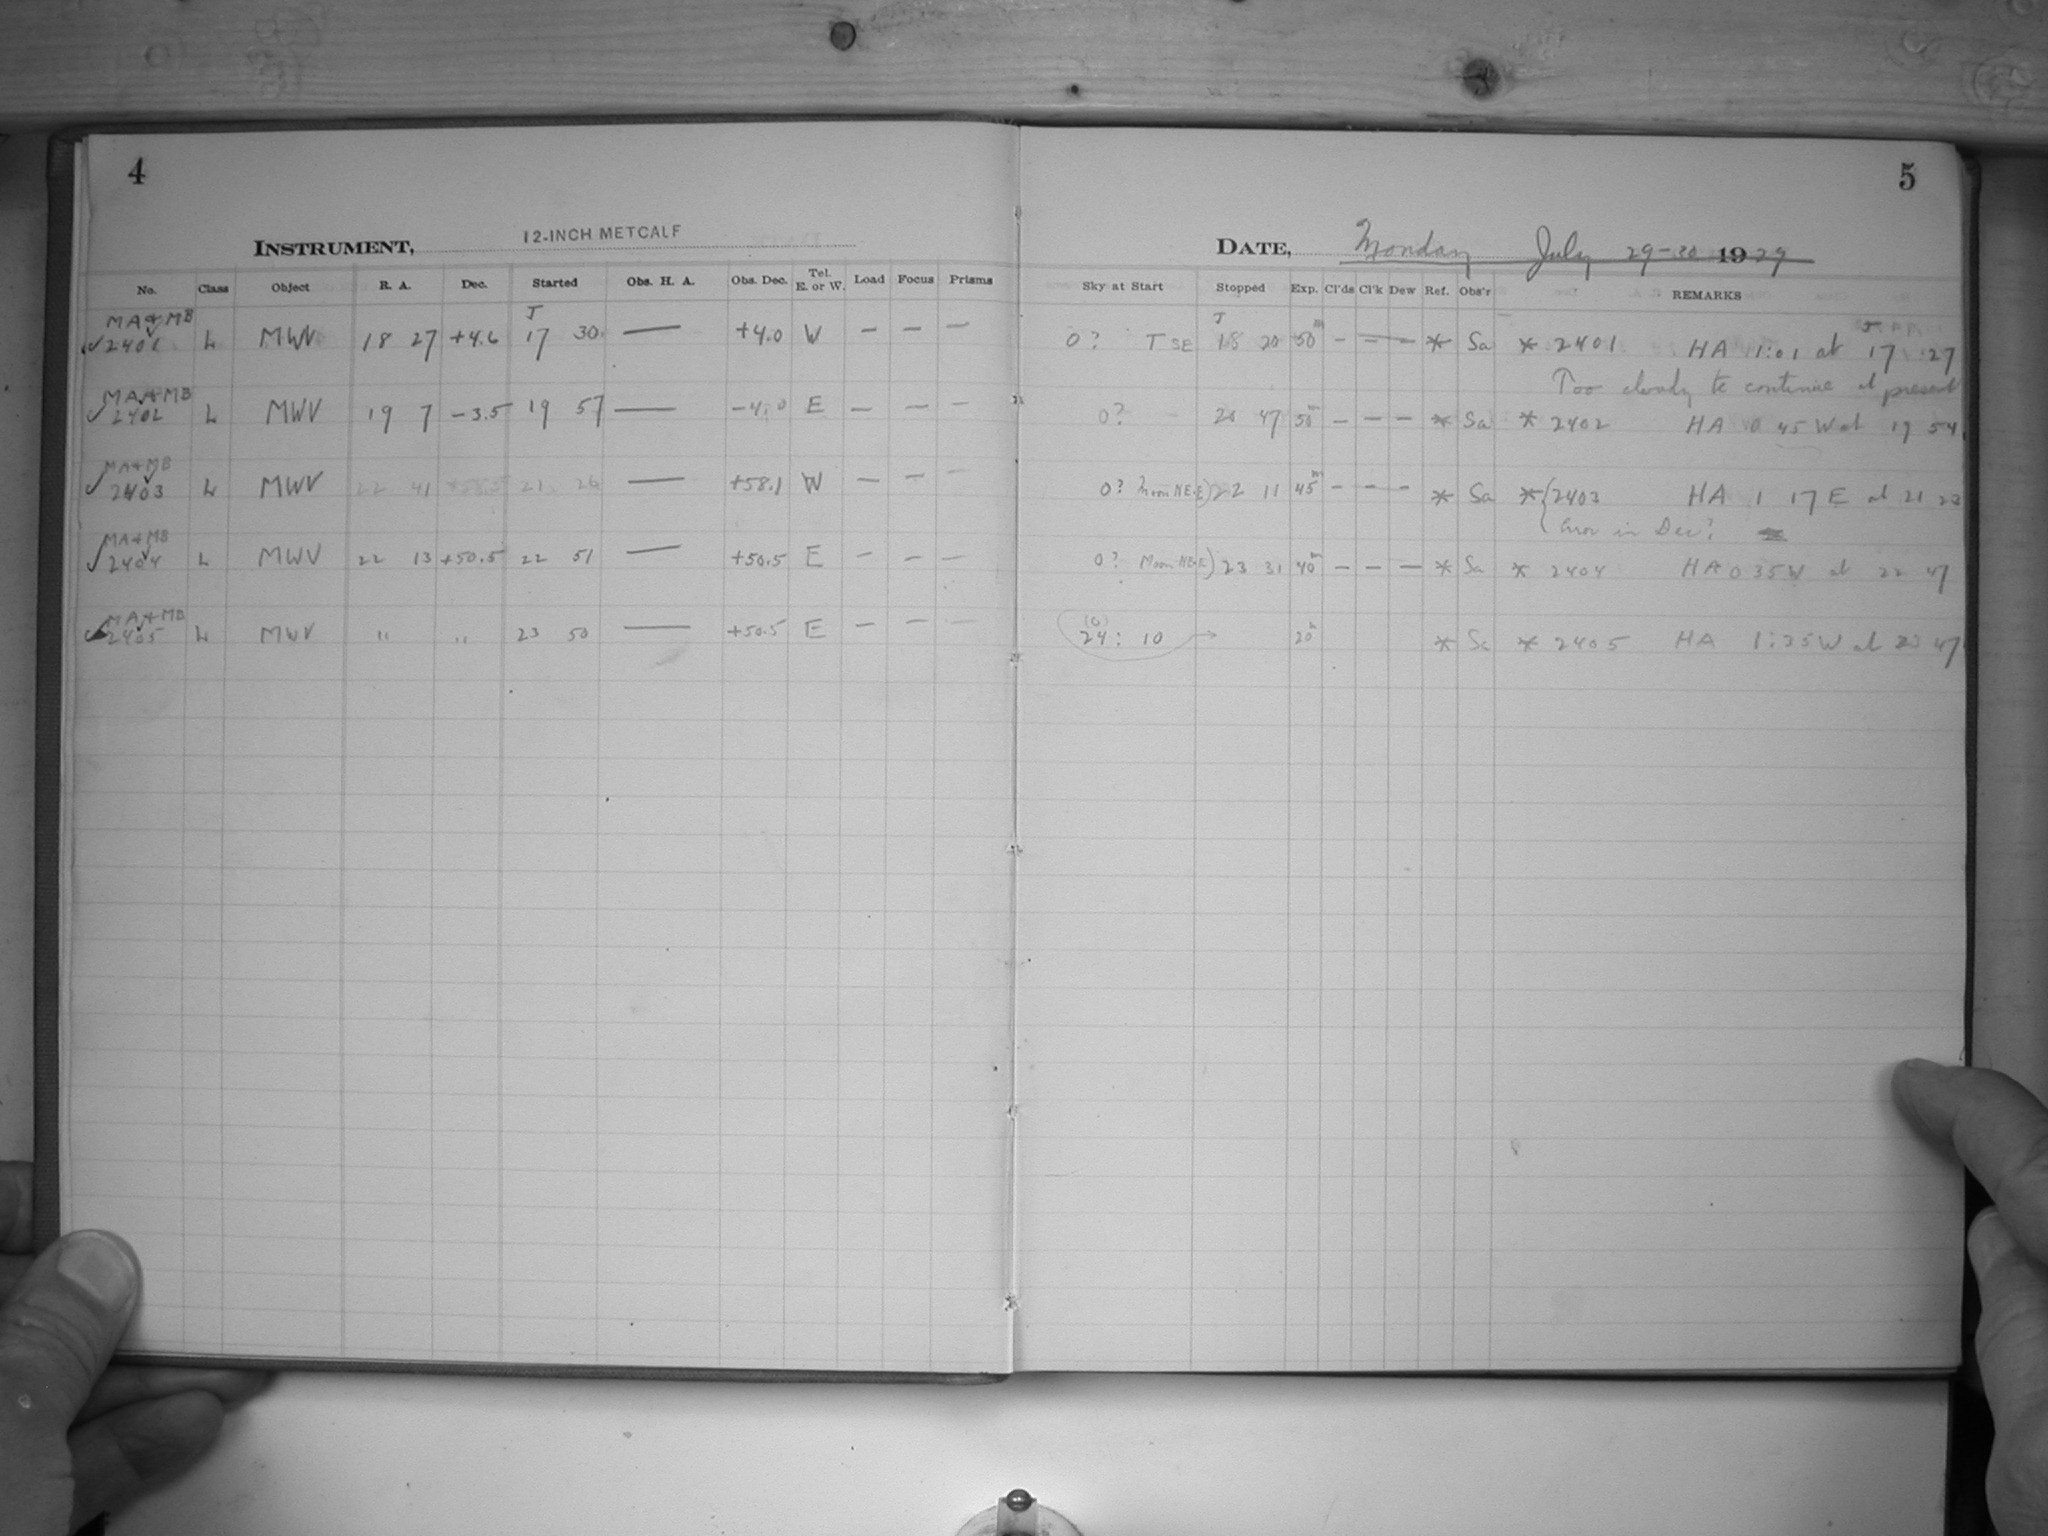 4
INSTRUMENT, 12-INCH METCALF
No. Class Object R. A. Dec. Started Obs. H. A. Obs. Dec. Tel. E. or W. Load Focus Prisms
MA & MB
✓ 2401 L MWV 18 27 +4.6 J 17 30 — +4.0 W — — —
MA & MB
✓ 2402 L MWV 19 7 -3.5 19 57 — -4.0 E — — —
MA & MB
✓ 2403 L MWV 22 41 +58.5 21 26 — +58.1 W — — —
MA & MB
✓ 2404 L MWV 22 13 +50.5 22 51 — +50.5 E — — —
MA & MB
✓ 2405 L MWV " " 23 50 — +50.5 E — — —
5
DATE, Monday July 29-30 1929
Sky at Start Stopped Exp. Cl'ds Cl'k Dew Ref. Obs'r REMARKS
0? T SE J 18 20 50m — — — * Sa * 2401 HA 1:01 at J 17 27
Too cloudy to continue at present
0? 20 47 50m — — — * Sa * 2402 HA 0 45 W at 19 54
0? Moon NE-E) 22 11 45m — — — * Sa * 2403 HA 1 17 E at 21 23
Error in Dec?
0? Moon NE-E) 23 31 40m — — — * Sa * 2404 HA 0 35 W at 22 47
(0)
24: 10 → 20m * Sa * 2405 HA 1:35 W at 23 47